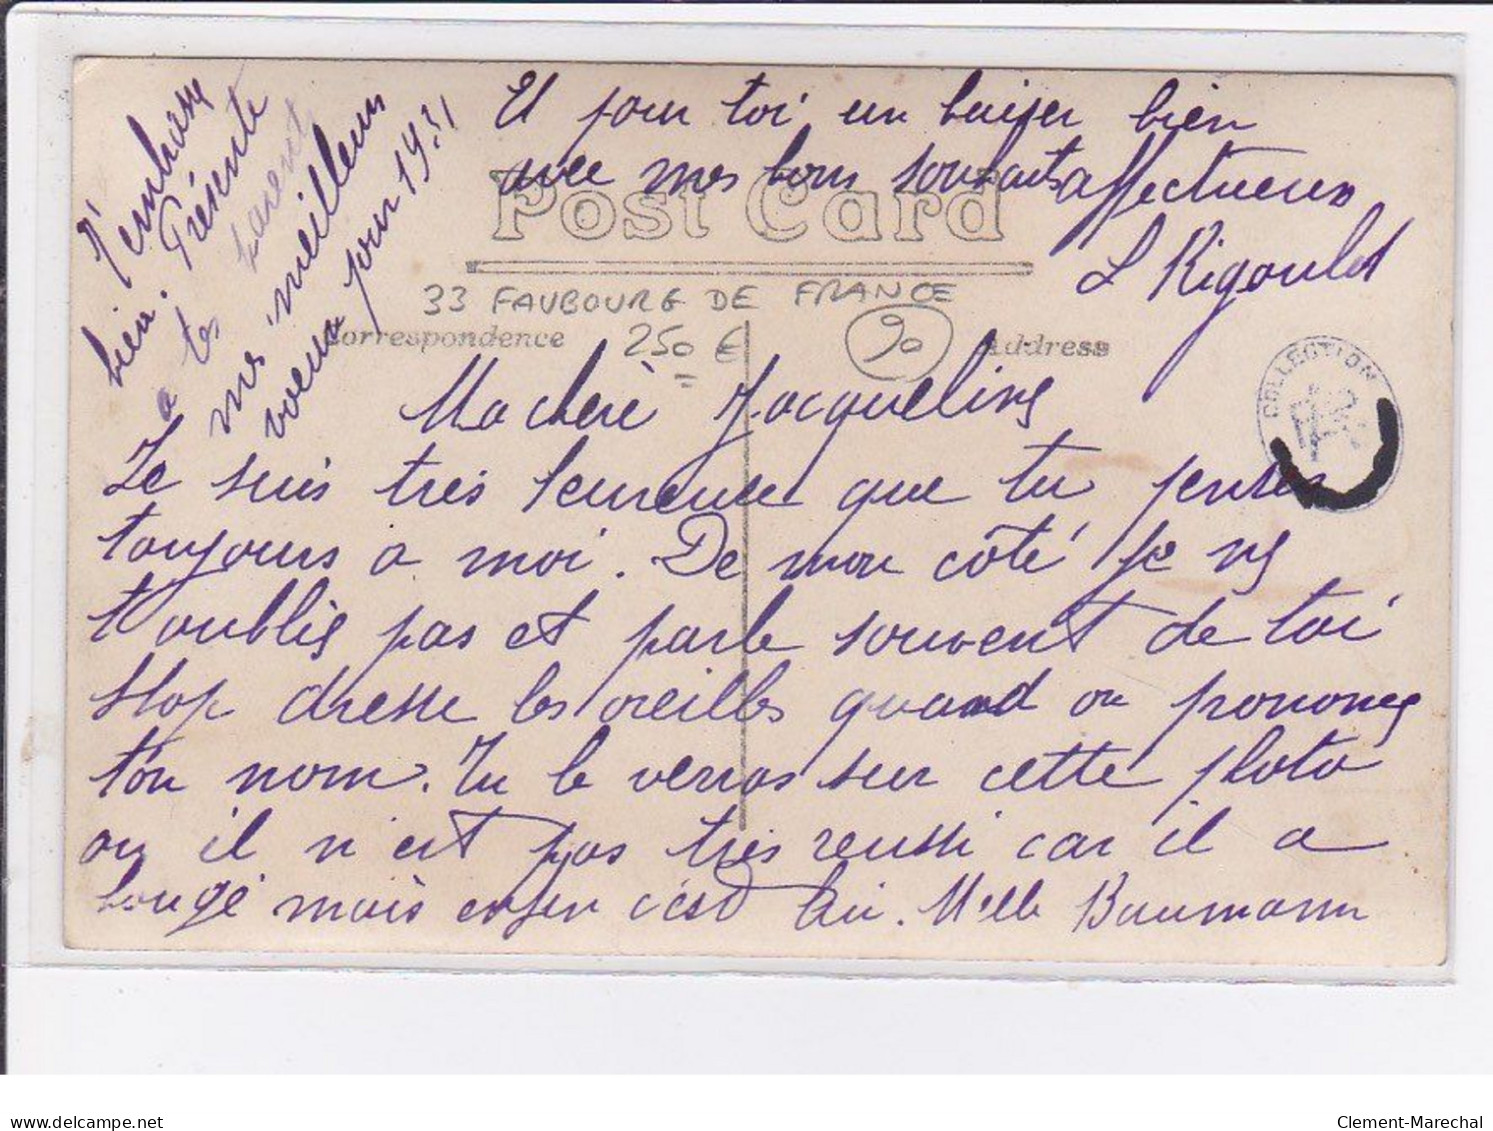 Ma chère Jacqueline
Je suis très heureuse que tu penses
toujours a moi. De mon côté je ne
t'oublie pas et parle souvent de toi
Stop dresse les oreilles quand on prononce
ton nom. Tu le verras sur cette photo
ou il n'est pas très reussi car il a
bougé mais enfin c'est lui. Melle Baumann
t'embrasse
bien. Présente
a tes parents
mes meilleurs
voeux pour 1931
Et pour toi un baiser bien
affectueux
avec mes bons souhaits
L Rigoulot
Post Card
33 FAUBOURG DE FRANCE
Correspondence
250 €
90
Address
COLLECTION
www.delcampe.net
Clement-Marechal